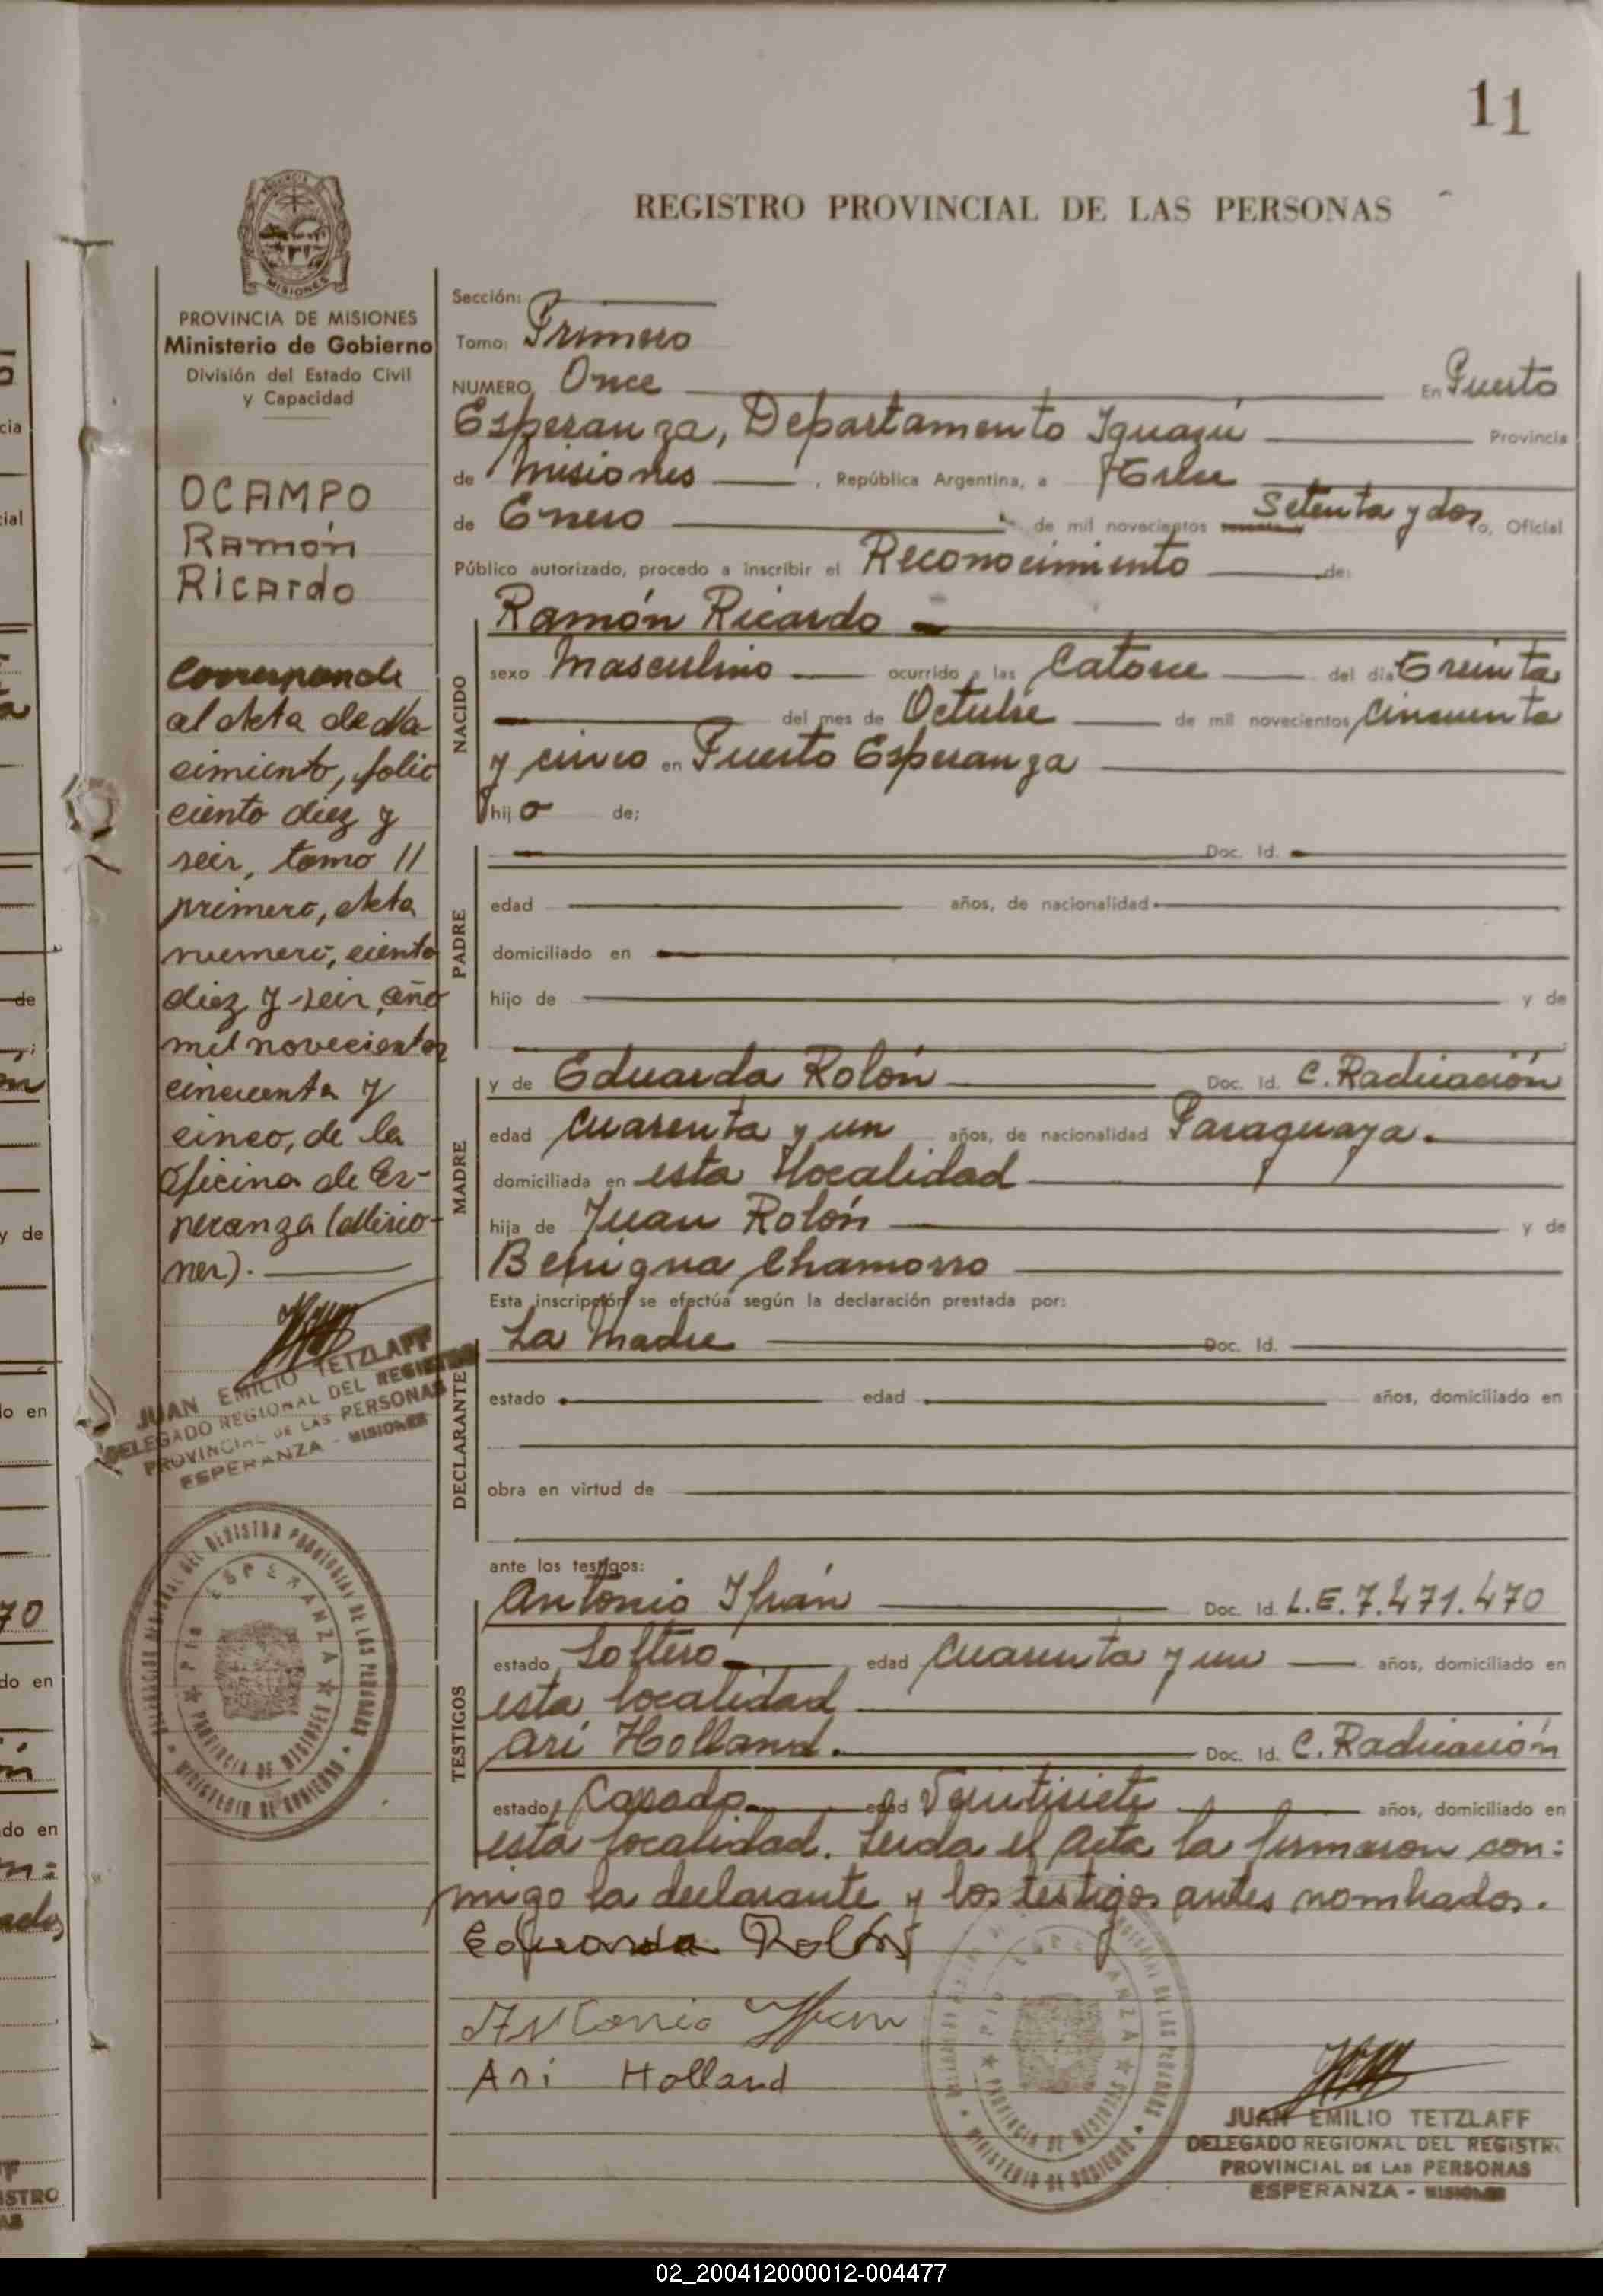 11
REGISTRO PROVINCIAL DE LAS PERSONAS
PROVINCIA DE MISIONES
Ministerio de Gobierno
División del Estado Civil
y Capacidad
OCAMPO
Ramón
Ricardo
Corresponde
al Acta de Na-
cimiento, folio
ciento diez y
seis, tomo
primero, Acta
numero, ciento
diez y seis, año
mil novecientos
cincuenta y
cinco, de la
Oficina de Es-
peranza (Misio-
nes).
JUAN EMILIO TETZLAFF
DELEGADO REGIONAL DEL REGISTRO
PROVINCIAL DE LAS PERSONAS
ESPERANZA - MISIONES
Sección:
Tomo: Primero
NUMERO Once En Puerto
Esperanza, Departamento Iguazú Provincia
de Misiones , República Argentina, a
de Enero de mil novecientos Setenta y dos Yo, Oficial
Público autorizado, procedo a inscribir el Reconocimiento de:
NACIDO
Ramón Ricardo
sexo Masculino ocurrido a las Catorce del día Treinta
del mes de Octubre de mil novecientos Cincuenta
y cinco en Puerto Esperanza
hijo de;
PADRE
Doc. Id.
edad años, de nacionalidad
domiciliado en
hijo de y de
MADRE
y de Eduarda Rolón Doc. Id. C. Radicación
edad Cuarenta y un años, de nacionalidad Paraguaya.
domiciliada en esta localidad
hija de Juan Rolón y de
Benigna Chamorro
Esta inscripción se efectúa según la declaración prestada por:
DECLARANTE
La Madre Doc. Id.
estado edad años, domiciliado en
obra en virtud de
ante los testigos:
TESTIGOS
Antonio Ifrán Doc. Id. L.E. 7.471.470
estado Soltero edad Cuarenta y un años, domiciliado en
esta localidad
Ari Holland. Doc. Id. C. Radicación
estado Casado edad Veintisiete años, domiciliado en
esta localidad. Leida el Acta la firmaron con:
migo la declarante y los testigos antes nombrados.
Eduarda Rolón
Antonio Ifran
Ari Holland
JUAN EMILIO TETZLAFF
DELEGADO REGIONAL DEL REGISTR
PROVINCIAL DE LAS PERSONAS
ESPERANZA - MISIONES
02_200412000012-004477